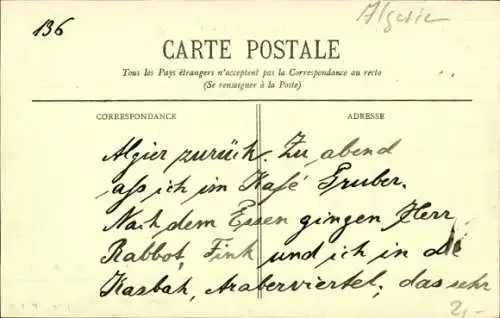 136
Algerie
CARTE POSTALE
Tous les Pays étrangers n'acceptent pas la Correspondance au recto
(Se renseigner à la Poste)
CORRESPONDANCE
ADRESSE
Algier zurück. Zu abend
aß ich im Kafé Gruber.
Nach dem Essen gingen Herr
Rabbot, Fink und ich in die
Kasbah, Araberviertel, das sehr
2,-